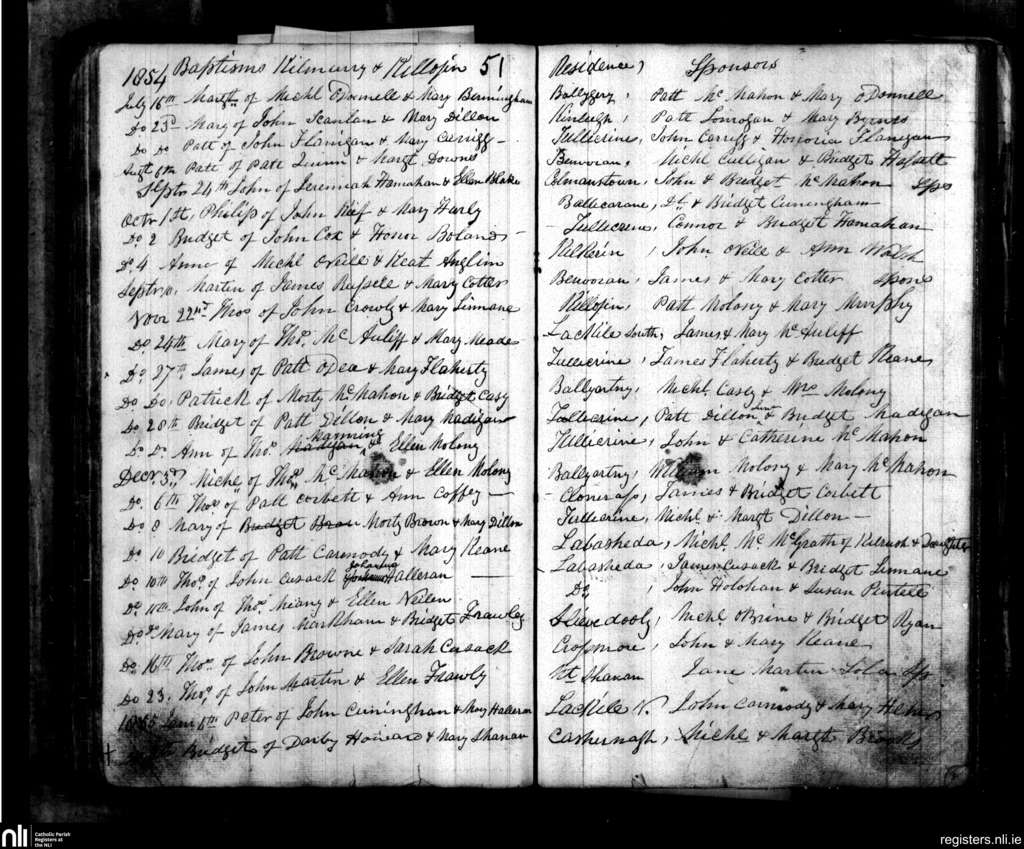 1854 Baptisms Kilmurry & Killofin 51
July 16th Margtt of Michl ODonnell & Mary Bermingham
Do 23d Mary of John Scanlan & Mary Dillon
Do Do Patt of John Flanigan & Mary Carrigg -
Augt 6th Patt of Patt Quinn & Margt Downes
Septr 24th John of Jeremiah Hanrahan & Ellen Blake
Octr 1st, Philip of John Keif & Mary Hurly
Do 2 Bridget of John Cox & Honor Boland -
Do 4 Anne of Michl ONeill & Keat Anglim
Septr 10, Martin of James Russele & Mary Cotter
Novr 22nd Thos of John Crowly & Mary Linnane
Do 24th Mary of Thos Mc Auliff & Mary Meade
Do 27th James of Patt ODea & Mary Flaherty
Do Do, Patrick of Morty McMahon & Bridget Casy
Do 28th Bridget of Patt Dillon & Mary Madigan
Do Do Ann of Thos Madigan Manning & Ellen Molony
Decr 3d Michl of Thos Mc Mahon & Ellen Molony
Do 6th Thos of Patt Corbett & Ann Coffey -
Do 8 Mary of Bridget Brown Morty Brown & Mary Dillon
Do 10 Bridget of Patt Carmody & Mary Keane
Do 10th Thos of John Cusack Halleran -
Do 10th John of Thos & Ellen
Do Do Mary of James Markham & Bridget Frawley
Do 16th Thos of John Browne & Sarah Cusack
Do 23. Thos of John Martin & Ellen Frawly
1855 Jany 6th Peter of John Cuningham & Mary Halleran
Bridget of Darby Howard & Mary Shanan
Residence, Sponsors
Ballygery, Patt McMahon & Mary ODonnell
Kinleigh, Patt Lonrogan & Mary Byrnes
Tullicrine, John Carrigg & Honoria Flanigan
Benvoran, Michl Culligan & Bridget Hassett
Colmanstown, John & Bridget McMahon Sps
Ballicarane, & Bridget Cuningham
- Tullicrine, Connor & Bridget Hanrahan
Kilkerin, John ONeill & Ann Walsh
Benvoran, James & Mary Cotter Spons
Killofin, Patt Molony & Mary Murphy
LacKile South, James & Mary McAuliff
Tullicrine, James Flaherty & Bridget Keane
Ballyartny, Michl. Casey & Mrs Molony
Tullicrine, Patt Dillon & Bridget Madigan
Tullicrine, John & Catherine McMahon
Ballyartny, William Molony & Mary McMahon
- Clonerass, James & Bridget Corbett
Tullicrine, Michl. & Margt Dillon -
Labasheda, Michl. Mc McGrath of Kilrush & Daughter
Labasheda, James Cusack & Bridget Linnane
Do, John Holohan & Susan
Slievedooly, Michl OBrine & Bridget Ryan
Crossmore, John & Mary Keane
Mt Shanan Jane Martin Sp
LacKile N. John Carmody & Mary
Cashernagh, Michl & Margt
nli Catholic Parish Registers at the NLI
registers.nli.ie